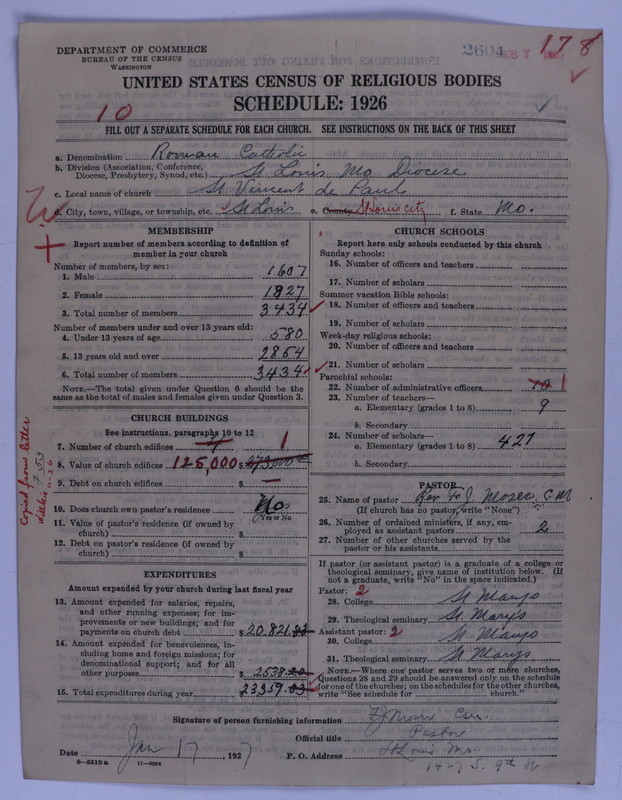 DEPARTMENT OF COMMERCE
BUREAU OF THE CENSUS
WASHINGTON
2604
178
UNITED STATES CENSUS OF RELIGIOUS BODIES
SCHEDULE: 1926
10
FILL OUT A SEPARATE SCHEDULE FOR EACH CHURCH. SEE INSTRUCTIONS ON THE BACK OF THIS SHEET
a. Denomination Roman Catholic
b. Division (Association, Conference,
Diocese, Presbytery, Synod, etc.) St Louis Mo Diocese
c. Local name of church St Vincent de Paul
d. City, town, village, or township, etc. St Louis e. County St Louis city f. State Mo.
MEMBERSHIP
Report number of members according to definition of
member in your church
Number of members, by sex:
1. Male 1607
2. Female 1827
3. Total number of members 3434
Number of members under and over 13 years old:
4. Under 13 years of age 580
5. 13 years old and over 2854
6. Total number of members 3434
NOTE.—The total given under Question 6 should be the
same as the total of males and females given under Question 3.
CHURCH BUILDINGS
See instructions, paragraphs 10 to 12
7. Number of church edifices 1
8. Value of church edifices 125,000 $
9. Debt on church edifices $ —
10. Does church own pastor's residence? No
Yes or No
11. Value of pastor's residence (if owned by
church) $
12. Debt on pastor's residence (if owned by
church) $
Copied from letter
EXPENDITURES
Amount expended by your church during last fiscal year
13. Amount expended for salaries, repairs,
and other running expenses; for im-
provements or new buildings; and for
payments on church debt $ 20.821.83
14. Amount expended for benevolences, in-
cluding home and foreign missions; for
denominational support; and for all
other purposes $ 2538.20
15. Total expenditures during year $ 23359.03
CHURCH SCHOOLS
Report here only schools conducted by this church
Sunday schools:
16. Number of officers and teachers
17. Number of scholars
Summer vacation Bible schools:
18. Number of officers and teachers
19. Number of scholars
Week-day religious schools:
20. Number of officers and teachers
21. Number of scholars
Parochial schools:
22. Number of administrative officers 1
23. Number of teachers—
a. Elementary (grades 1 to 8) 9
b. Secondary
24. Number of scholars—
a. Elementary (grades 1 to 8) 427
b. Secondary
PASTOR
25. Name of pastor Rev F. J. Moser, C.M
(If church has no pastor, write "None")
26. Number of ordained ministers, if any, em-
ployed as assistant pastors 2
27. Number of other churches served by the
pastor or his assistants
If pastor (or assistant pastor) is a graduate of a college or
theological seminary, give name of institution below. (If
not a graduate, write "No" in the space indicated.)
Pastor: 2
28. College St Marys
29. Theological seminary St Marys
Assistant pastor: 2
30. College St Marys
31. Theological seminary St Marys
NOTE.—Where one pastor serves two or more churches,
Questions 28 and 29 should be answered only on the schedule
for one of the churches; on the schedules for the other churches,
write "See schedule for church."
Signature of person furnishing information F J Moser C.M.
Official title Pastor
Date Jan 17, 1927 P. O. Address St Louis Mo.
8—5518a 11—9064
S. 9th